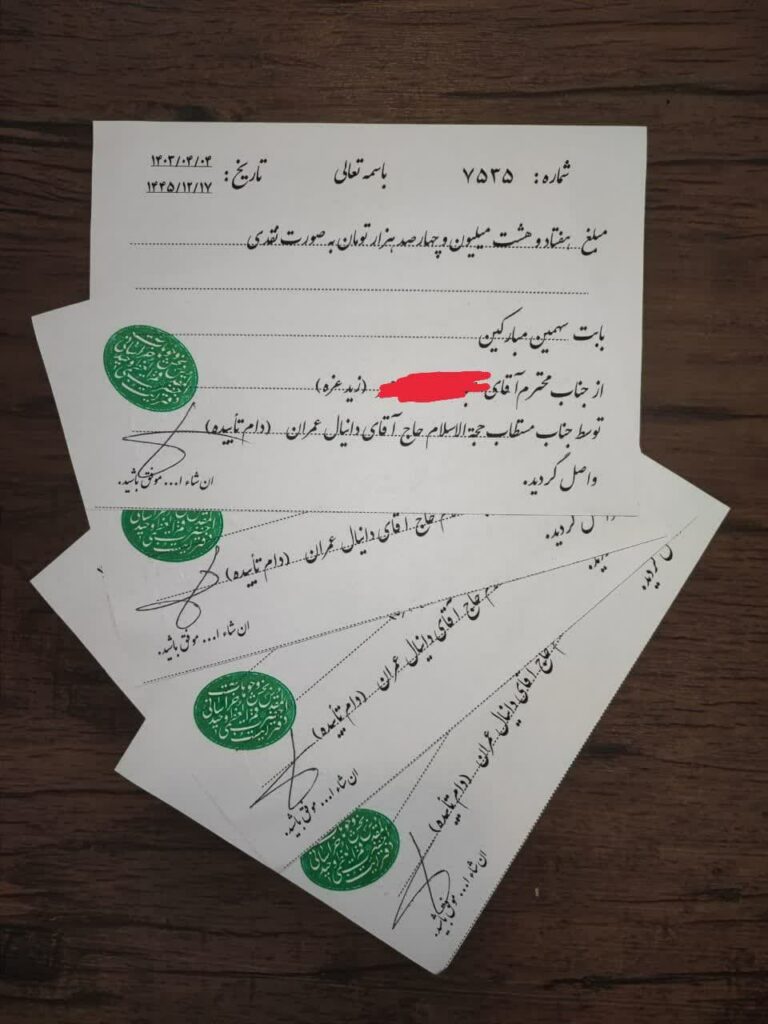 شماره: ۷۵۳۵
باسمه تعالی
تاریخ: ۱۴۰۳/۰۴/۰۴
۱۴۴۵/۱۲/۱۷
مبلغ هفتاد و هشت میلیون و چهارصد هزار تومان به صورت نقدی
بابت سهمین مبارکین
از جناب محترم آقای (زید عزه)
توسط جناب مستطاب حجة الاسلام حاج آقای دانیال عمران (دام تأییده)
واصل گردید.
ان شاء ا... موفق باشید.
حاج آقای دانیال عمران (دام تأییده)
گردید.
ان شاء ا... موفق باشید.
حاج آقای دانیال عمران (دام تأییده)
ان شاء ا... موفق باشید.
حاج آقای دانیال عمران (دام تأییده)
گردید.
ان شاء ا... موفق باشید.